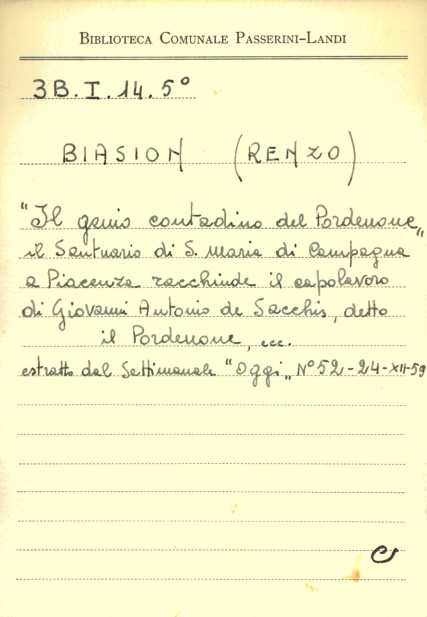 BIBLIOTECA COMUNALE PASSERINI-LANDI
3B.I.14.5°
BIASION (RENZO)
"Il genio contadino del Pordenone„
il Santuario di S. Maria di Campagna
a Piacenza racchiude il capolavoro
di Giovanni Antonio de Sacchis, detto
il Pordenone, ecc.
estratto dal Settimanale "Oggi„ N° 52-24-XII-59